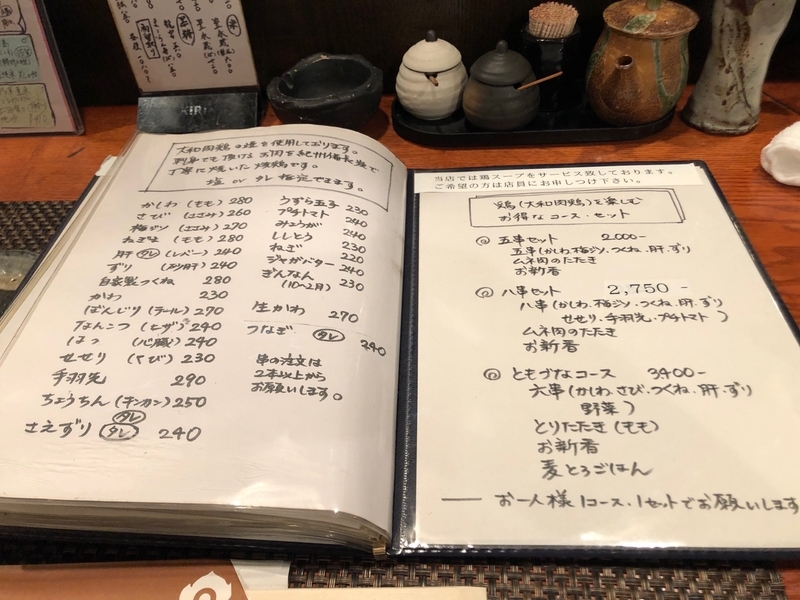 大和肉鶏の塩を使用しております。
刺身でも頂けるお肉を紀州備長炭で
丁寧に焼いた焼鶏です。
塩 or タレ 指定できます。
かしわ(もも) 280
さび(ささみ) 260
梅ジソ(ささみ) 270
ねぎま(もも) 280
肝 タレ(レバー) 240
ずり(砂肝) 240
自家製つくね 280
かわ 230
ぼんじり(テール) 270
なんこつ(ヒザ) 240
はつ(心臓) 240
せせり(くび) 230
手羽先 290
ちょうちん(キンカン) 250
タレ
さえずり タレ 240
うずら玉子 230
プチトマト 240
みょうが 240
ししとう 230
ねぎ 220
ジャガバター 240
ぎんなん 230
(10~2月)
生かわ 270
つなぎ タレ 240
串の注文は
2本以上から
お願いします。
当店では鶏スープをサービス致しております。
ご希望の方は店員にお申しつけ下さい。
鶏(大和肉鶏)を楽しむ
お得なコース・セット
五串セット 2,000-
五串(かしわ・梅ジソ・つくね・肝・ずり
ムネ肉のたたき
お新香
八串セット 2,750-
八串(かしわ・梅ジソ・つくね・肝・ずり
せせり・手羽先・プチトマト)
ムネ肉のたたき
お新香
ともづなコース 3400-
六串(かしわ・さび・つくね・肝・ずり
野菜)
とりたたき(もも)
お新香
麦とろごはん
お一人様1コース・1セットでお願いします